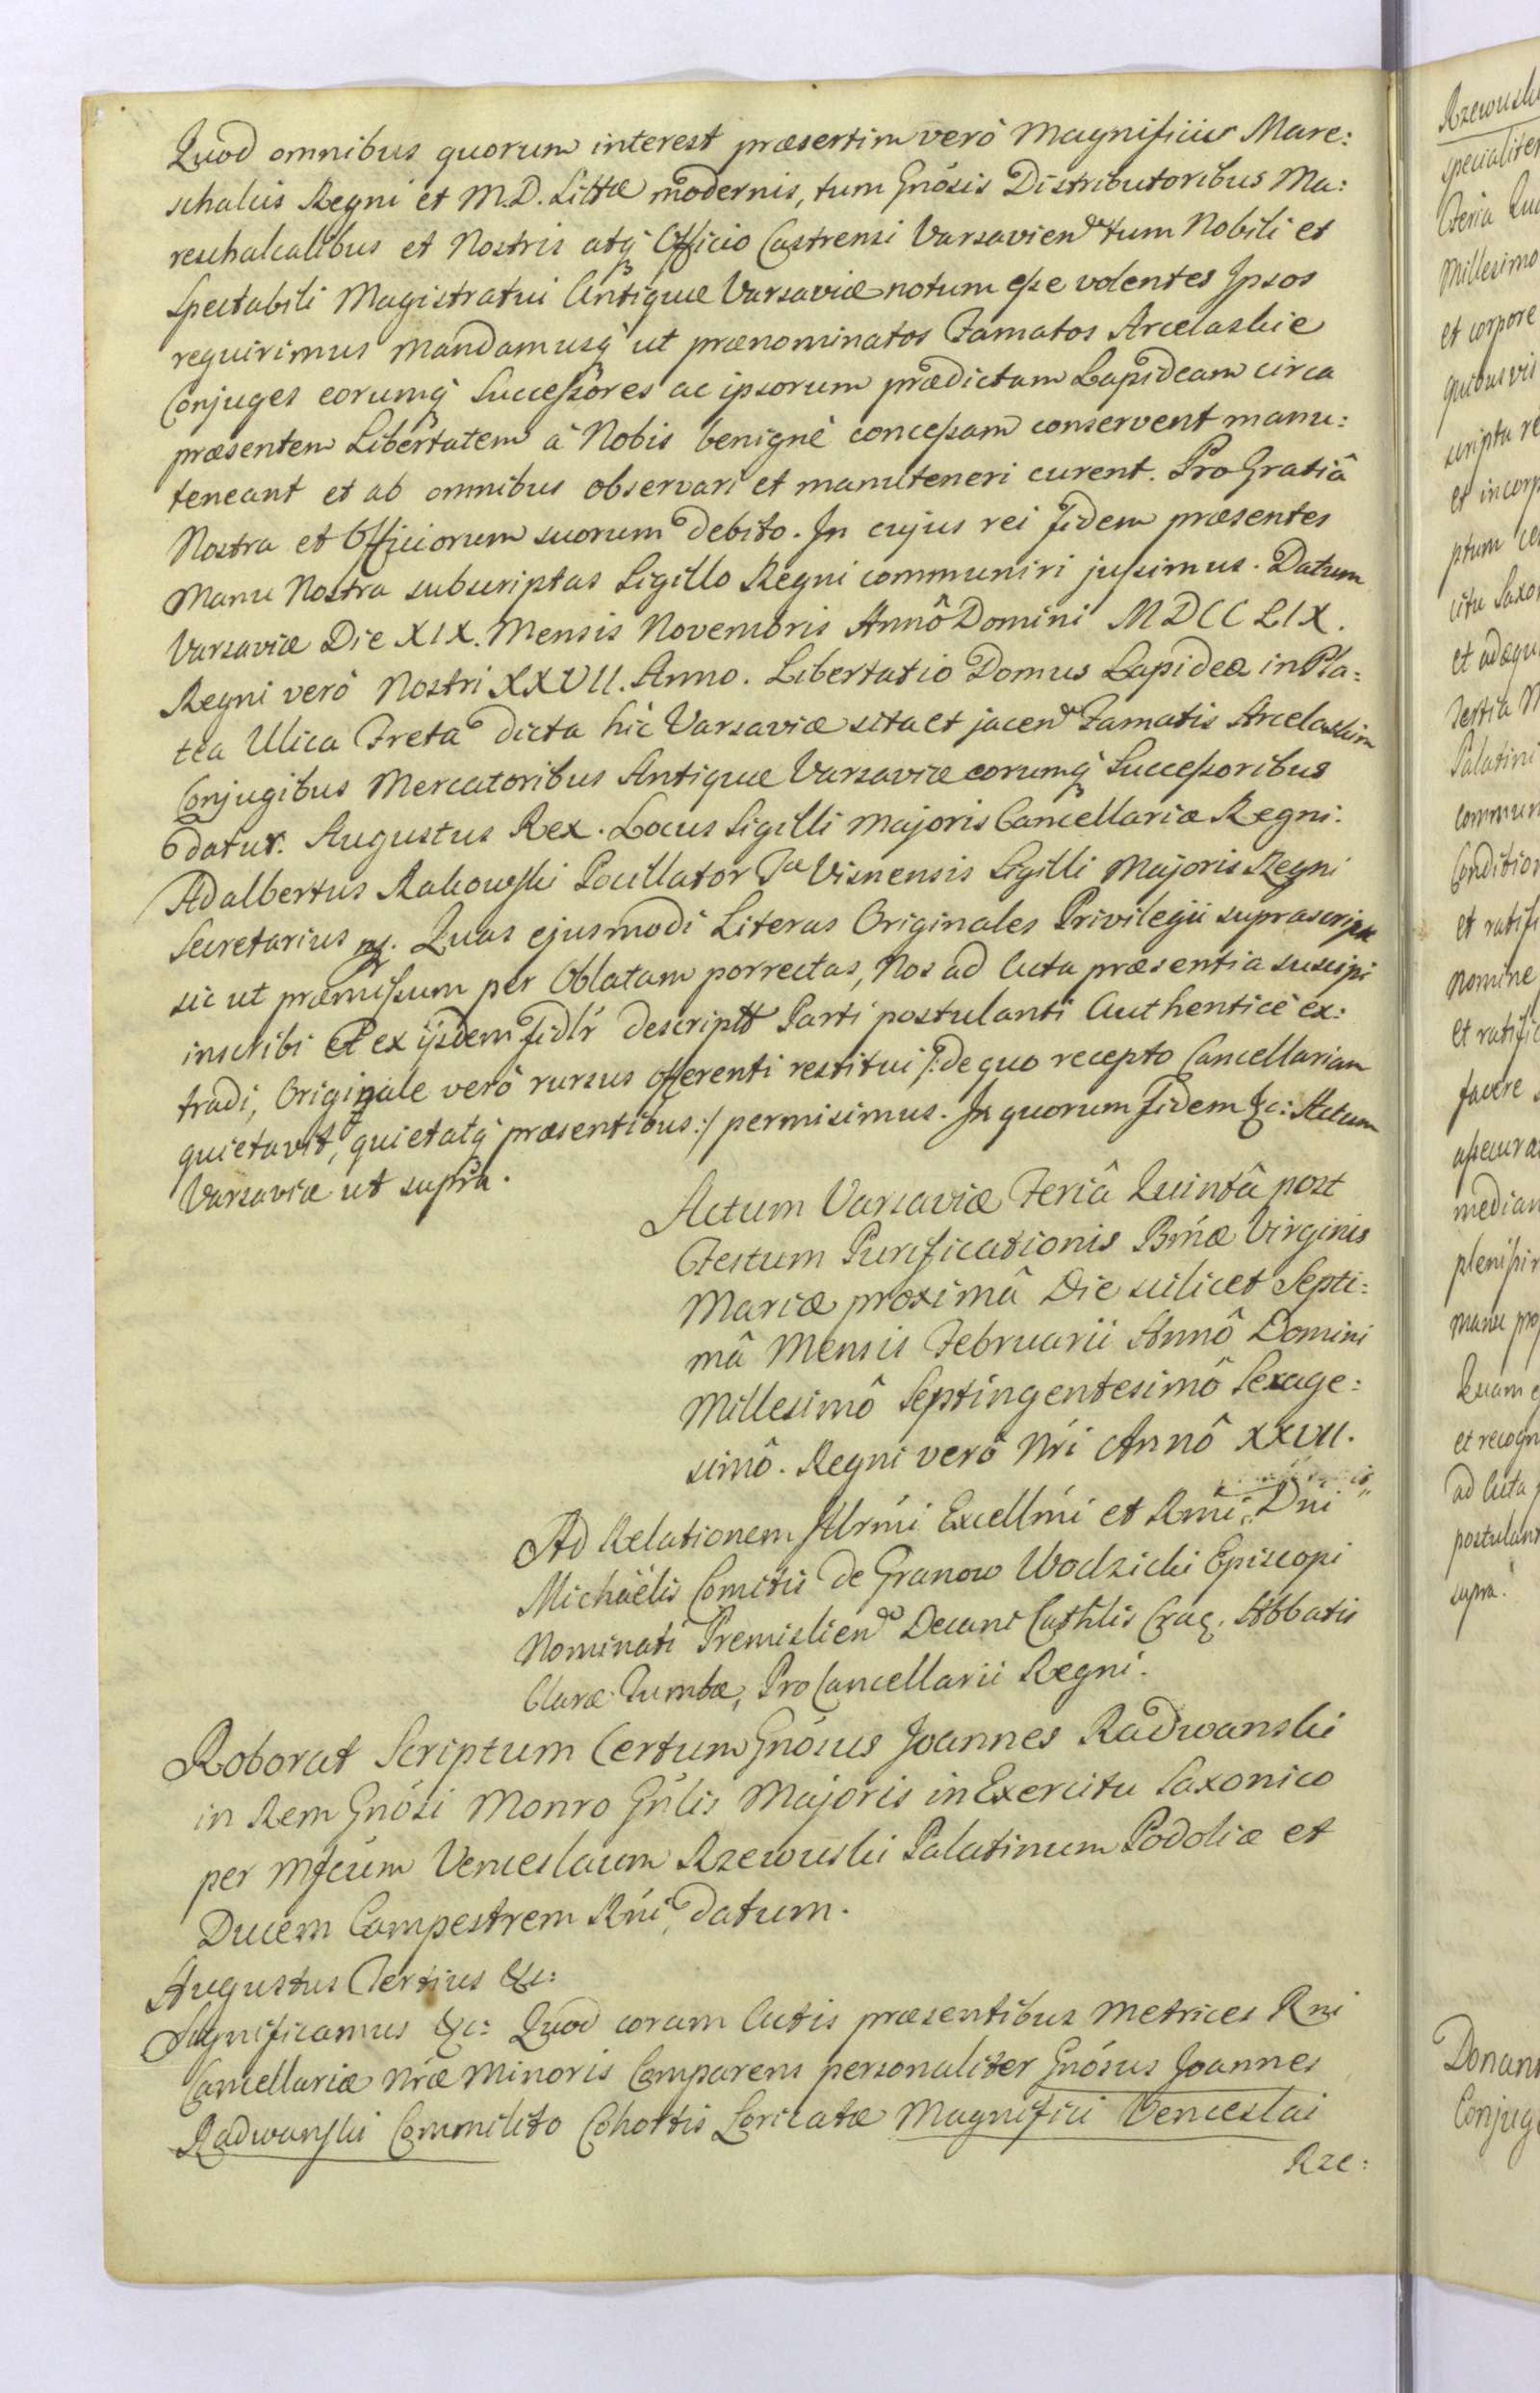 Quod omnibus quorum interest præsertim verò Magnificis Mare:
schalcis Regni et M.D. Littæ modernis, tum Gnósis Distributoribus Ma:
reschalcalibus et Nostris atq́ Officio Castrensi Varsavien tum Nobili et
Spectabili Magistratui Antiquæ Varsaviæ notum esse volentes Ipsos
requirimus mandamusq́ ut prænominatos Famatos Arcelaskie
Conjuges eorumq́ Successores ac ipsorum prædictam Lapideam circa
præsentem Libertatem à Nobis benignè concessam conservent manu:
teneant et ab omnibus observari et manuteneri curent. Pro Gratiâ
Nostra et Officiorum suorum debito. In cujus rei Fidem præsentes
Manu Nostra subscriptas Sigillo Regni communiri jussimus. Datum
Varsaviæ Die XIX. Mensis Novembris Annô Domini MDCCLIX.
Regni verò Nostri XXVII. Anno. Libertatio Domus Lapideæ in Pla:
tea Ulica Freta dicta hic Varsaviæ sita et jacen Famatis Arcelaskim
Conjugibus Mercatoribus Antiquæ Varsaviæ eorumq́ Successoribus
datur. Augustus Rex. Locus Sigilli Majoris Cancellariæ Regni.
Adalbertus Rakowski Pocillator Tæ Visnensis Sigilli Majoris Regni
Secretarius mp. Quas ejusmodi Literas Originales Privilegii suprascript
sic ut præmissum per Oblatam porrectas, Nos ad Acta præsentia suscipi
inscribi et ex ijsdem Fidlr descriptt Parti postulanti Authenticè ex:
tradi, Originale verò rursus offerenti restitui /: de quo recepto Cancellariam
quietavit, quietatq́ præsentibus :/ permisimus. In quorum Fidem &c: Actum
Varsaviæ ut supra.
Actum Varsaviæ Feriâ Quintâ post
Festum Purificationis Bmæ Virginis
Mariæ proximâ Die scilicet Septi:
mâ Mensis Februarii Annô Domini
Millesimô Septingentesimô Sexage:
simô. Regni verò Nri Annô XXVII.
Ad Relationem Illrmi Excellmi et Rmi Dni
Michaëlis Comitis de Granow Wodzicki Episcopi
Nominati Premislien Decani Cathlis Crac. Abbatis
Claræ Tumbæ, Pro Cancellarii Regni.
Roborat Scriptum Certum Gnósus Joannes Radwanski
in Rem Gnósi Monro Gnlis Majoris in Exercitu Saxonico
per Mfcum Venceslaum Rzewuski Palatinum Podoliæ et
Ducem Campestrem Rni datum.
Augustus Tertius &c:
Significamus &c: Quod coram Actis præsentibus Metrices Rni
Cancellariæ Nræ Minoris Comparens personaliter Gnósus Joannes
Radwanski Commilito Cohortis Loricatæ Magnifici Venceslai
Rze: